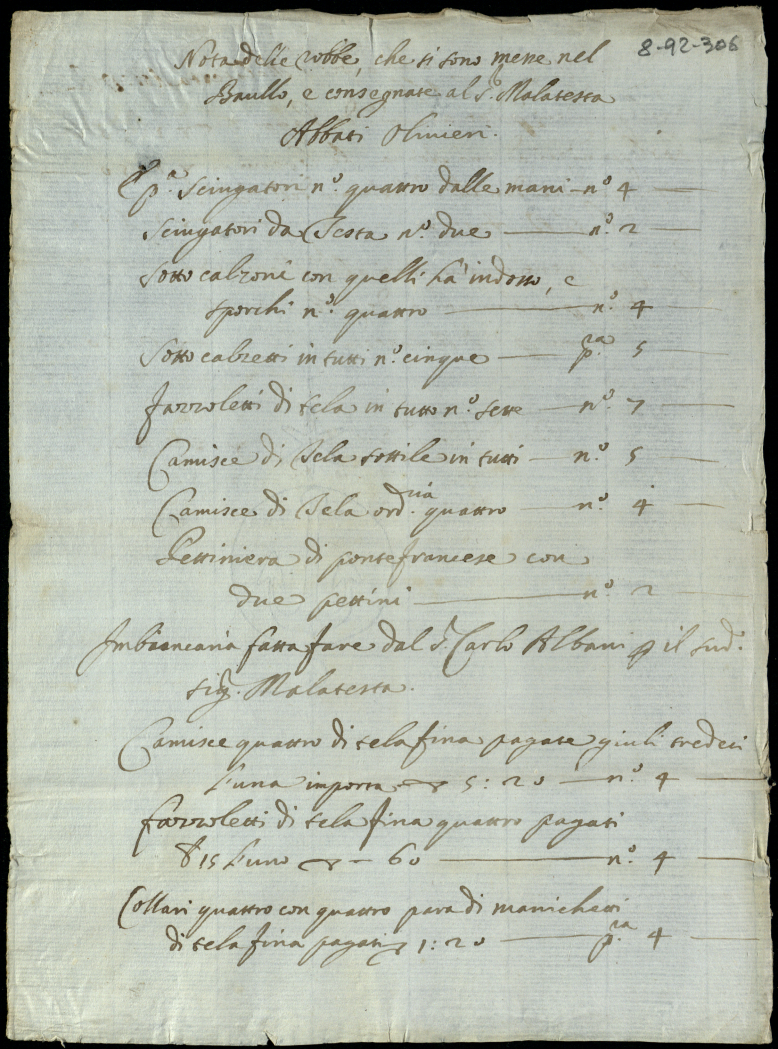 8-92-306
Nota delle robbe, che si sono messe nel
Baullo, e consegnate al S.r Malatesta
Abbati Olivieri.
P.a Sciugatori n.o quattro dalle mani - n.o 4
Sciugatori da Testa n.o due — n.o 2
Sotto calzoni con quelli hà indosso, e
sporchi n.o quattro — n.o 4
Sotto calzetti in tutti n.o cinque — p.ra 5
Fazzoletti di tela in tutto n.o sette — n.o 7
Camisce di Tela sottile in tutti — n.o 5
Camisce di Tela ord.ria quattro — n.o 4
Pettiniera di ponte francese con
due pettini — n.o 2
Imbiancaria fatta fare dal S.r Carlo Albani p il sud.o
Sig.r Malatesta.
Camisce quattro di tela fina pagate giuli tredeci
l'una importa 5:20 — n.o 4
fazzoletti di tela fina quattro pagati
15 l'uno — 60 — n.o 4
Collari quattro con quattro para di manichetti
di tela fina pagati 1:20 — p.ra 4